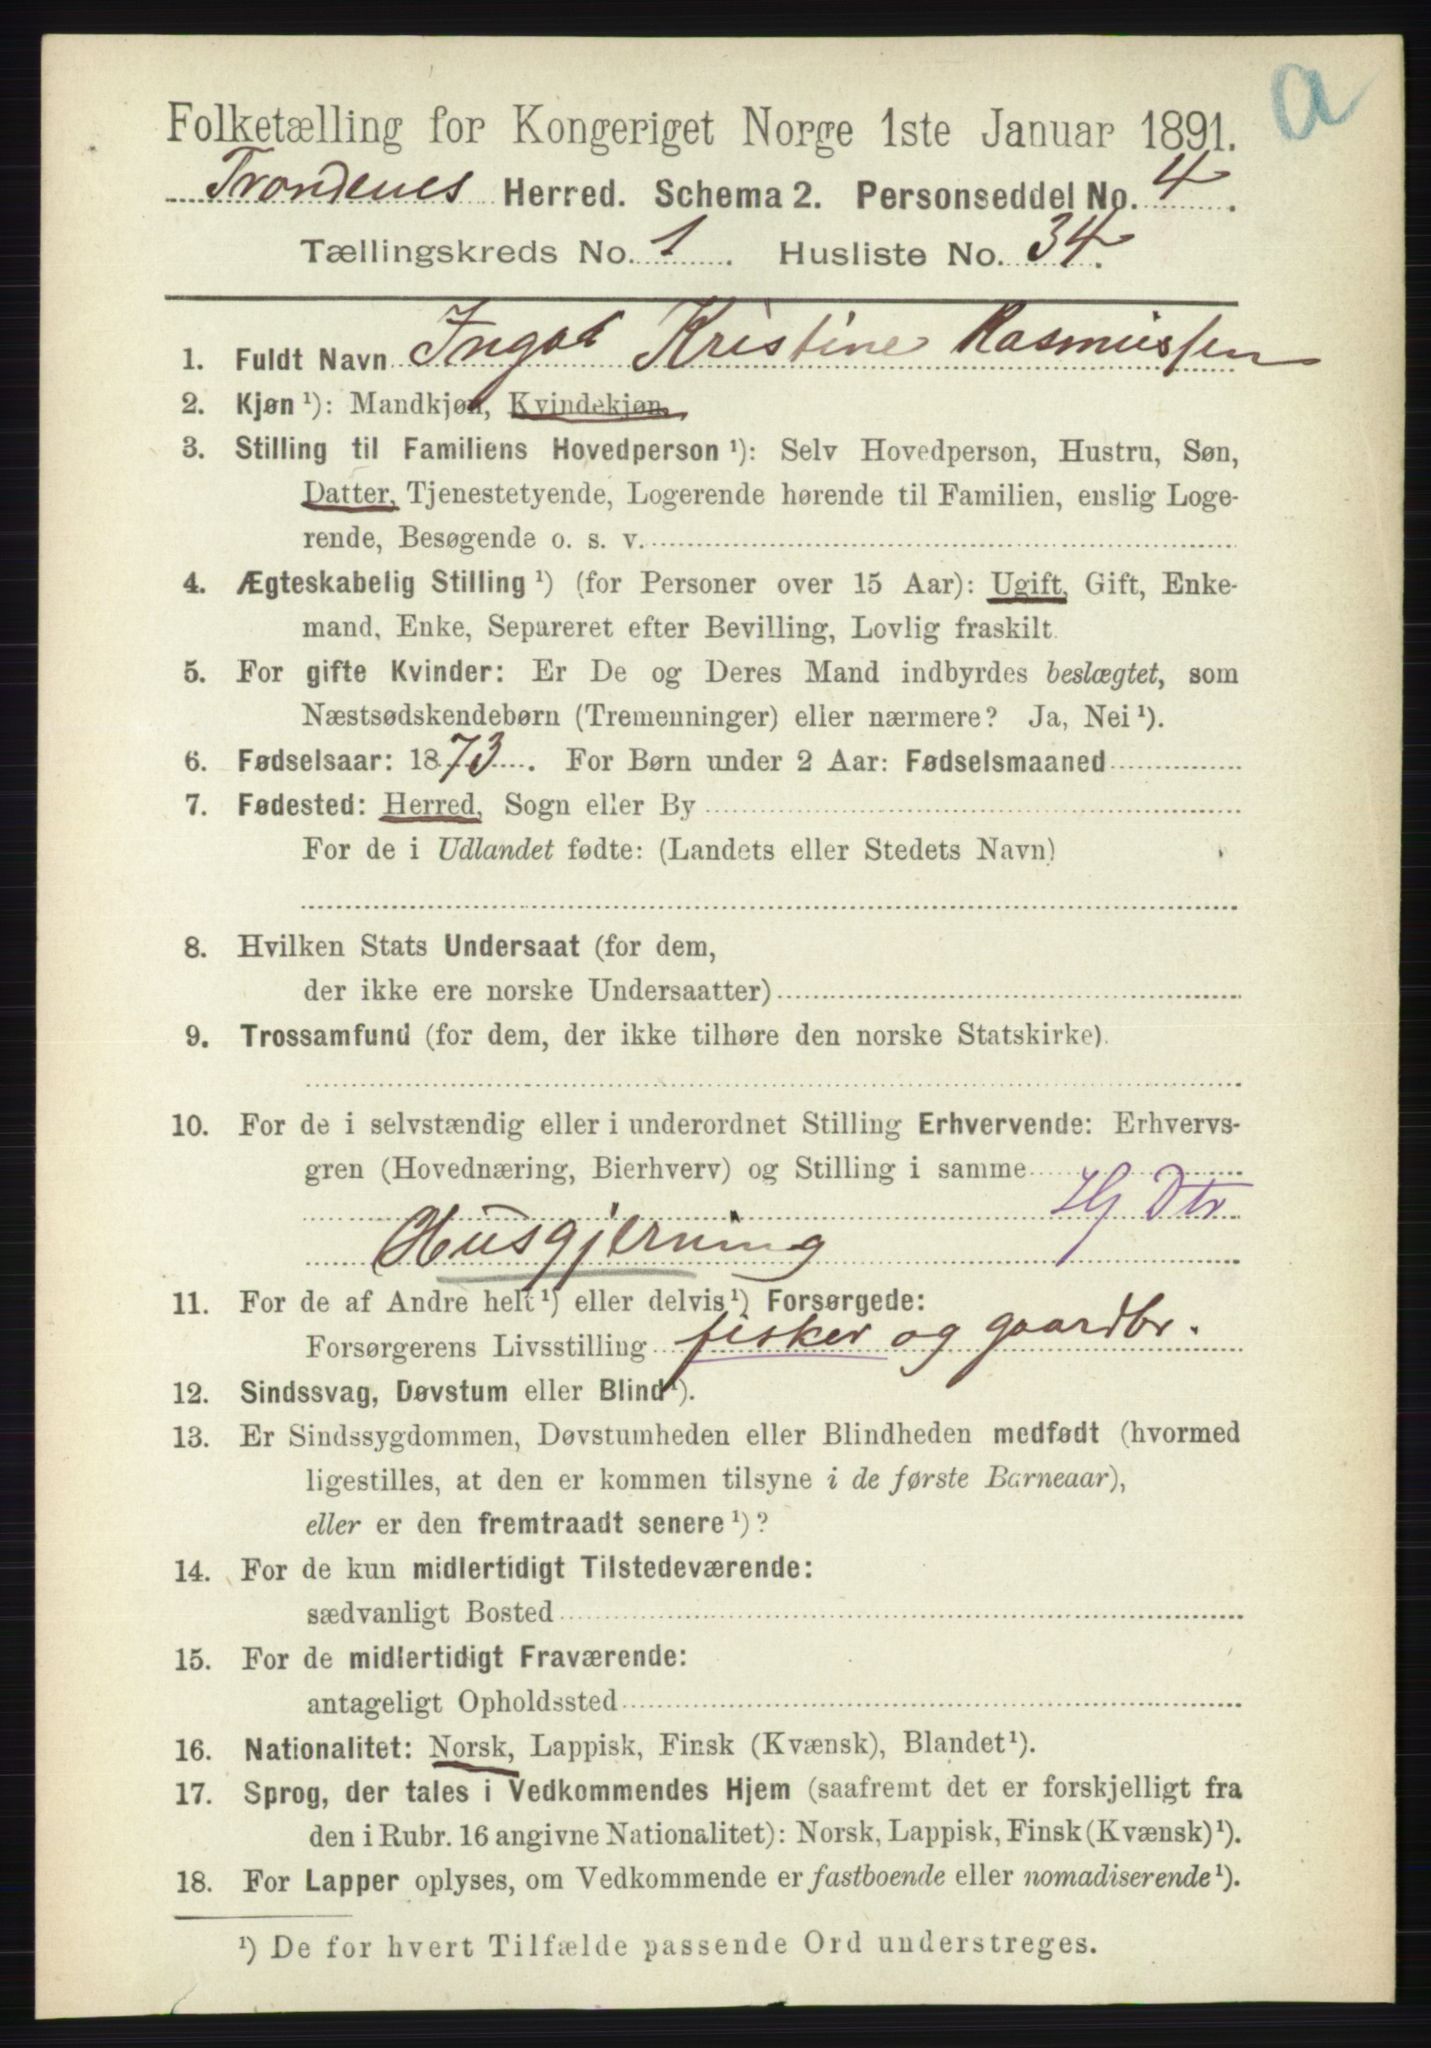 a
Folketælling for Kongeriget Norge 1ste Januar 1891.
Trondenes Herred. Schema 2. Personseddel No. 4.
Tællingskreds No. 1. Husliste No. 34.
1. Fuldt Navn Kristine Rasmussen
2. Kjøn ¹): Mandkjøn, Kvindekjøn.
3. Stilling til Familiens Hovedperson ¹): Selv Hovedperson, Hustru, Søn,
Datter, Tjenestetyende, Logerende hørende til Familien, enslig Loge-
rende, Besøgende o. s. v.
4. Ægteskabelig Stilling ¹) (for Personer over 15 Aar): Ugift, Gift, Enke-
mand, Enke, Separeret efter Bevilling, Lovlig fraskilt.
5. For gifte Kvinder: Er De og Deres Mand indbyrdes beslægtet, som
Næstsødskendebørn (Tremenninger) eller nærmere? Ja, Nei ¹).
6. Fødselsaar: 1873. For Børn under 2 Aar: Fødselsmaaned
7. Fødested: Herred, Sogn eller By
For de i Udlandet fødte: (Landets eller Stedets Navn)
8. Hvilken Stats Undersaat (for dem,
der ikke ere norske Undersaatter)
9. Trossamfund (for dem, der ikke tilhøre den norske Statskirke).
10. For de i selvstændig eller i underordnet Stilling Erhvervende: Erhvervs-
gren (Hovednæring, Bierhverv) og Stilling i samme
Hj Dtr
Husgjerning
11. For de af Andre helt ¹) eller delvis ¹) Forsørgede:
Forsørgerens Livsstilling fisker og gaardbr.
12. Sindssvag, Døvstum eller Blind ¹).
13. Er Sindssygdommen, Døvstumheden eller Blindheden medfødt (hvormed
ligestilles, at den er kommen tilsyne i de første Barneaar),
eller er den fremtraadt senere ¹)?
14. For de kun midlertidigt Tilstedeværende:
sædvanligt Bosted
15. For de midlertidigt Fraværende:
antageligt Opholdssted
16. Nationalitet: Norsk, Lappisk, Finsk (Kvænsk), Blandet ¹).
17. Sprog, der tales i Vedkommendes Hjem (saafremt det er forskjelligt fra
den i Rubr. 16 angivne Nationalitet): Norsk, Lappisk, Finsk (Kvænsk) ¹).
18. For Lapper oplyses, om Vedkommende er fastboende eller nomadiserende ¹).
¹) De for hvert Tilfælde passende Ord understreges.